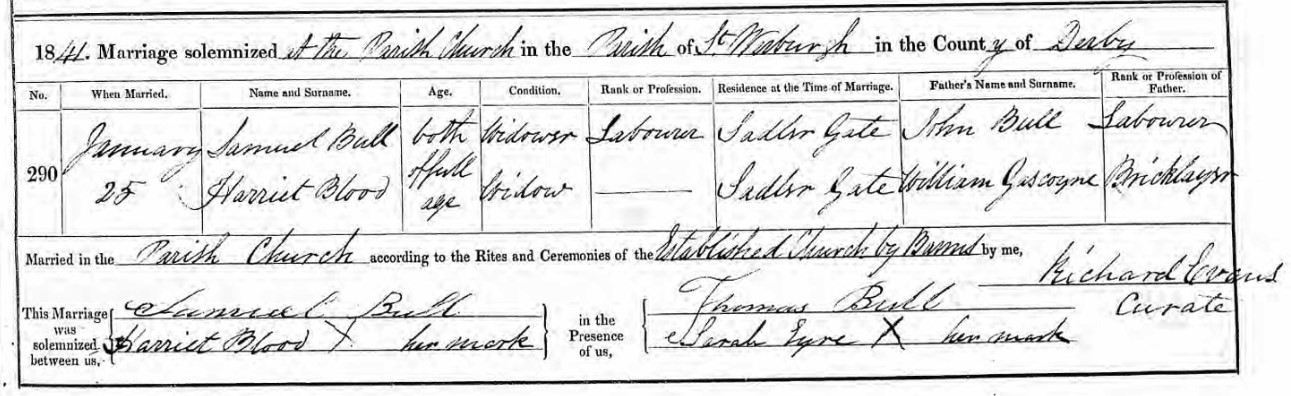 1841. Marriage solemnized at the Parish Church in the Parish of St Werburgh in the County of Derby
No. When Married. Name and Surname. Age. Condition. Rank or Profession. Residence at the Time of Marriage. Father's Name and Surname. Rank or Profession of Father.
290 January 25 Samuel Bull both of full age Widower Labourer Sadler Gate John Bull Labourer
Harriet Blood Widow — Sadler Gate William Gascoyne Bricklayer
Married in the Parish Church according to the Rites and Ceremonies of the Established Church by Banns by me,
Richard Evans
Curate
This Marriage was solemnized between us,
Samuel Bull
Harriet Blood X her mark
in the Presence of us,
Thomas Bull
Sarah Eyre X her mark